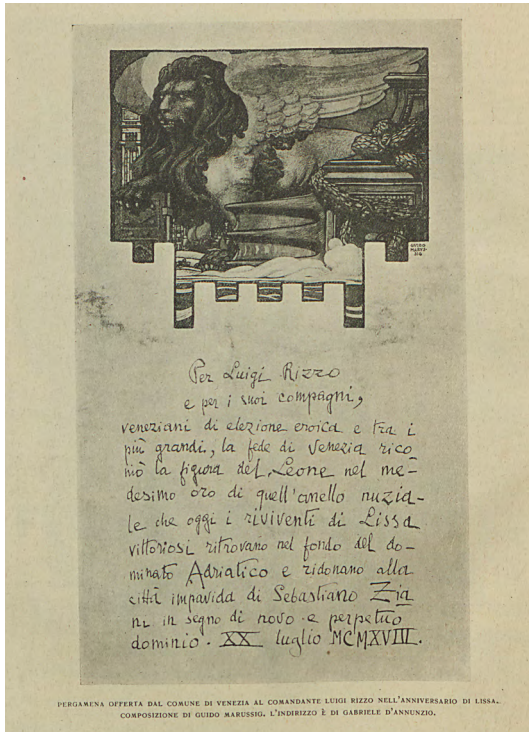 GUIDO
MARUS-
SIG
Per Luigi Rizzo
e per i suoi compagni,
veneziani di elezione eroica e tra i
più grandi, la fede di Venezia rico-
niò la figura del Leone nel me-
desimo oro di quell'anello nuzia-
le che oggi i riviventi di Lissa
vittoriosi ritrovano nel fondo del do-
minato Adriatico e ridonano alla
città impavida di Sebastiano Zia
ni in segno di novo e perpetuo
dominio. XX luglio MCMXVIII.
PERGAMENA OFFERTA DAL COMUNE DI VENEZIA AL COMANDANTE LUIGI RIZZO NELL'ANNIVERSARIO DI LISSA.
COMPOSIZIONE DI GUIDO MARUSSIG. L'INDIRIZZO È DI GABRIELE D'ANNUNZIO.